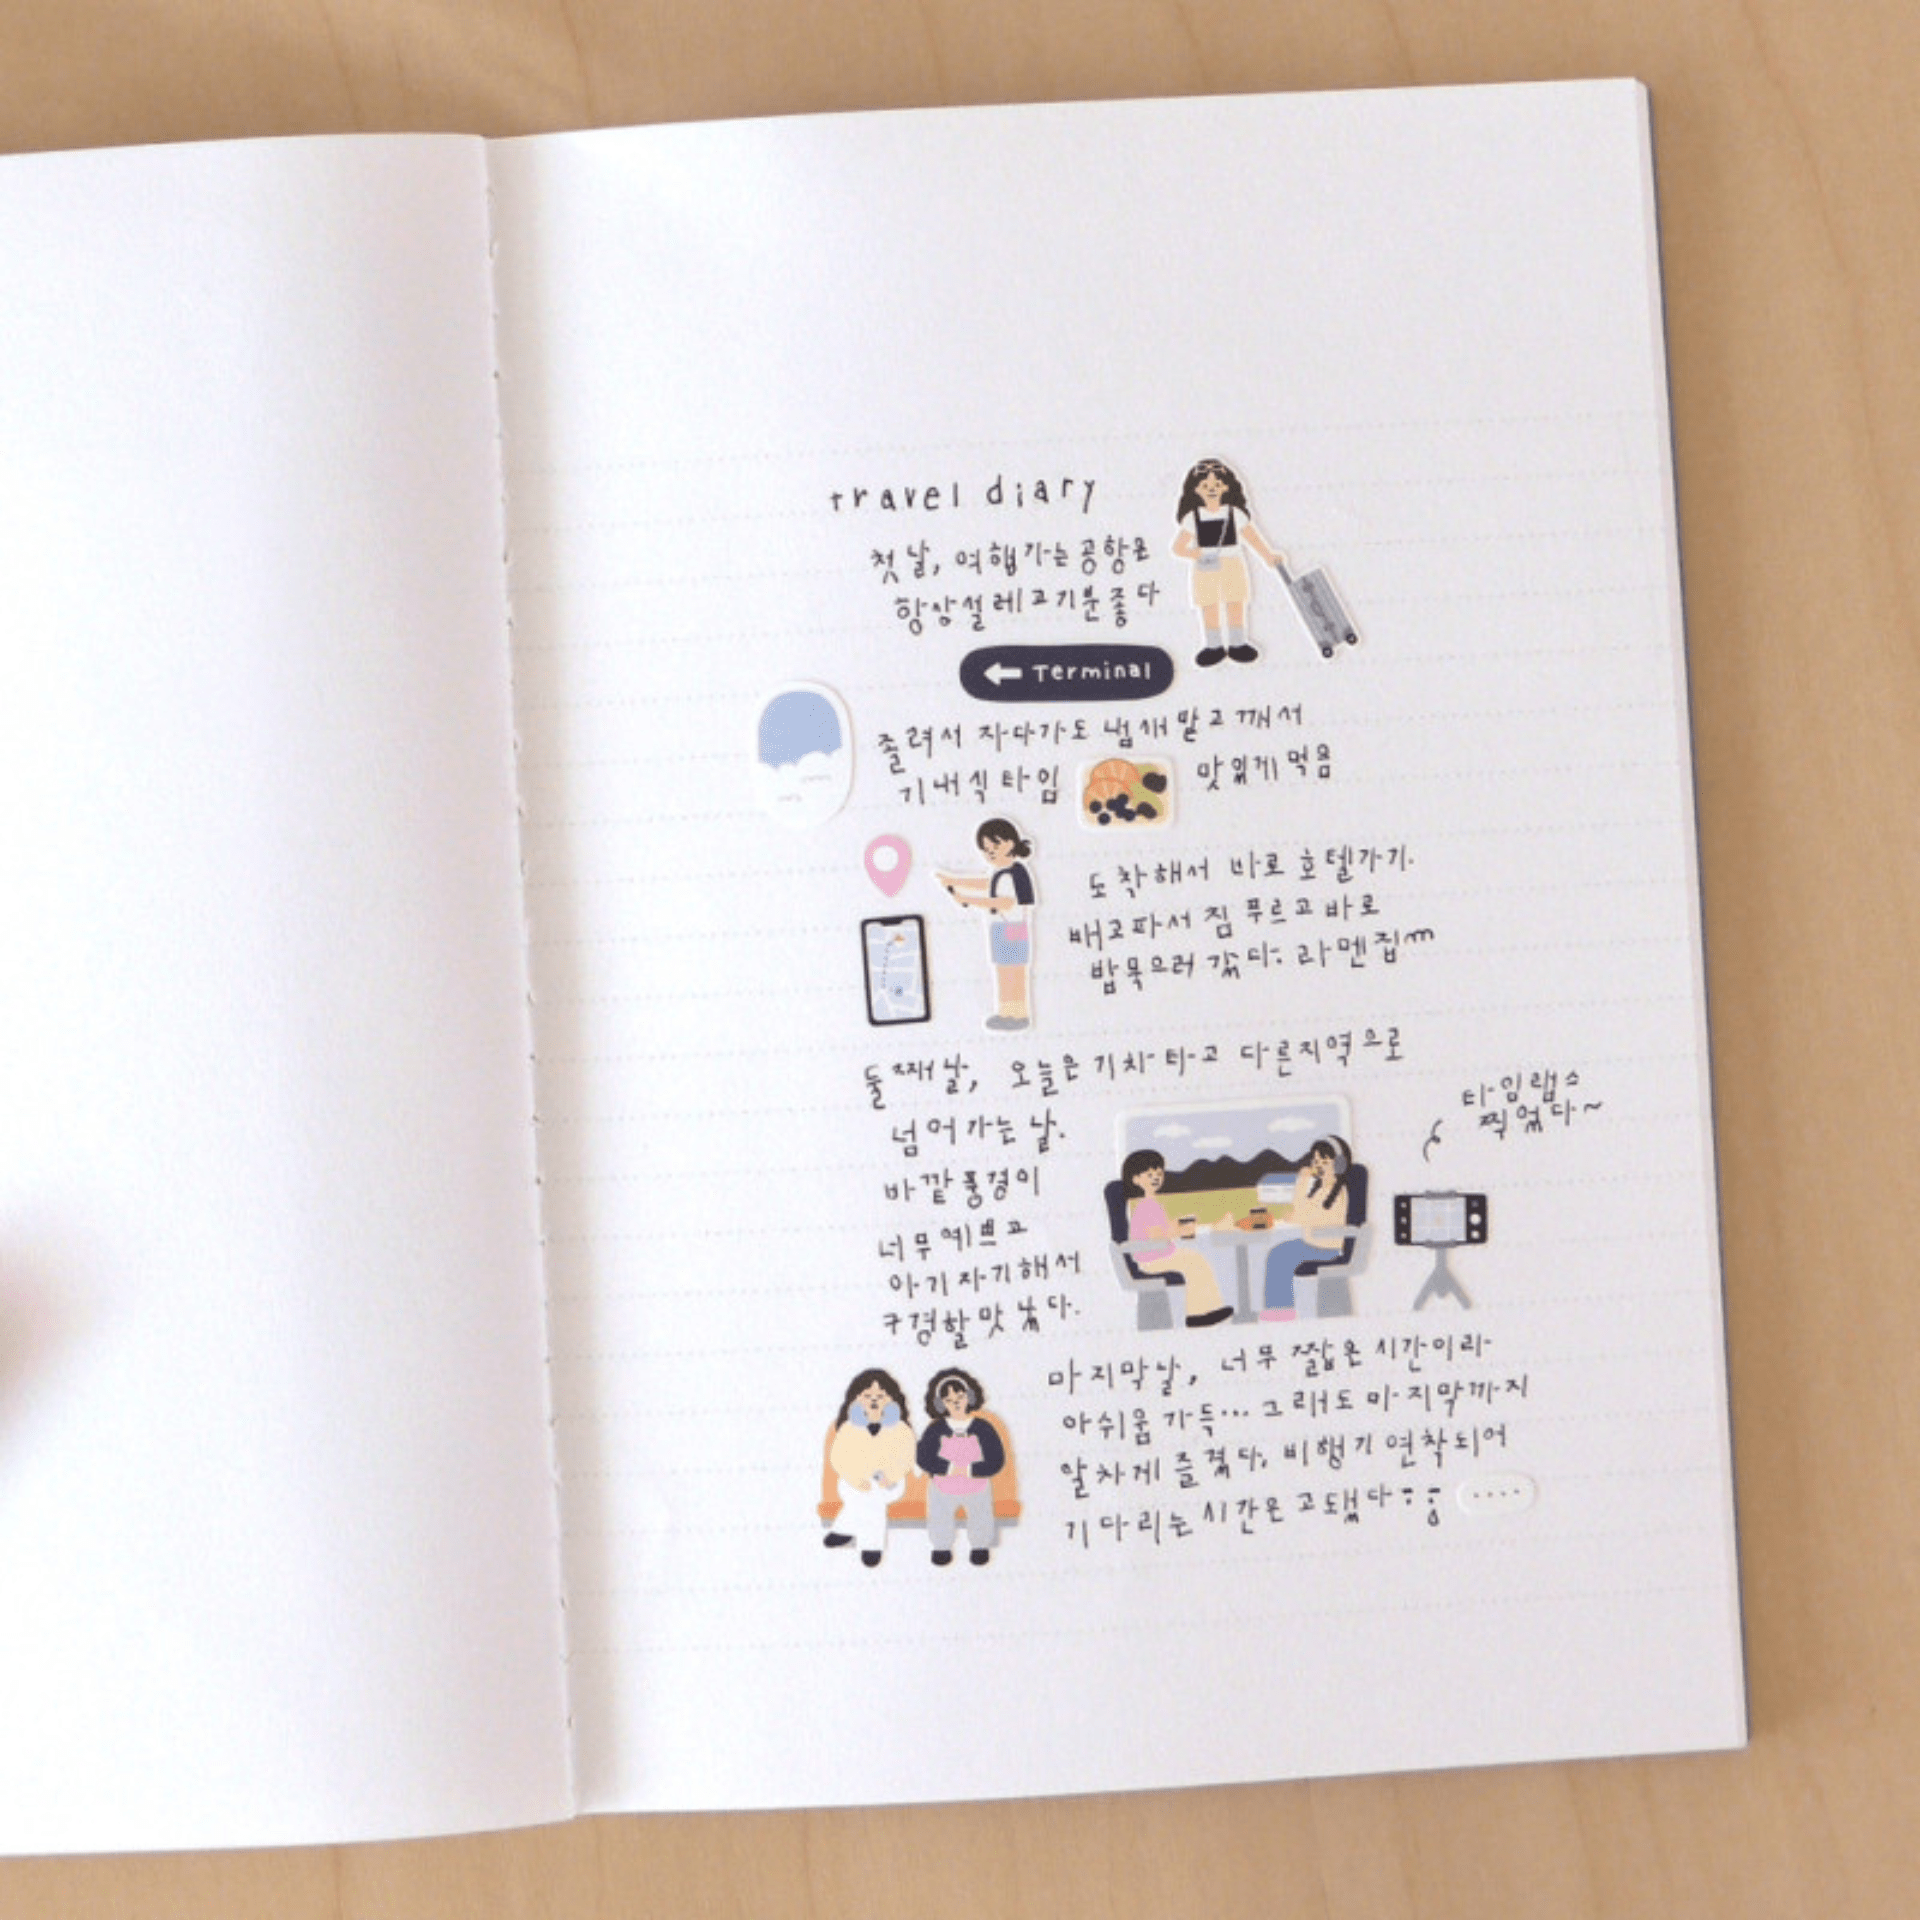 travel diary
첫날, 여행가는 공항은
항상 설레고 기분 좋다
← Terminal
졸려서 자다가도 냄새 맡고 깨서
기내식 타임 맛있게 먹음
도착해서 바로 호텔가기.
배고파서 짐 푸르고 바로
밥 묵으러 갔다: 라멘집m
둘째날, 오늘은 기차타고 다른지역으로
넘어가는 날.
타임랩스
찍었다~
바깥풍경이
너무 예쁘고
아기자기해서
구경할 맛 났다.
마지막날, 너무 짧은 시간이라
아쉬움 가득... 그래도 마지막까지
알차게 즐겼다, 비행기 연착되어
기다리는 시간은 고됐다
....